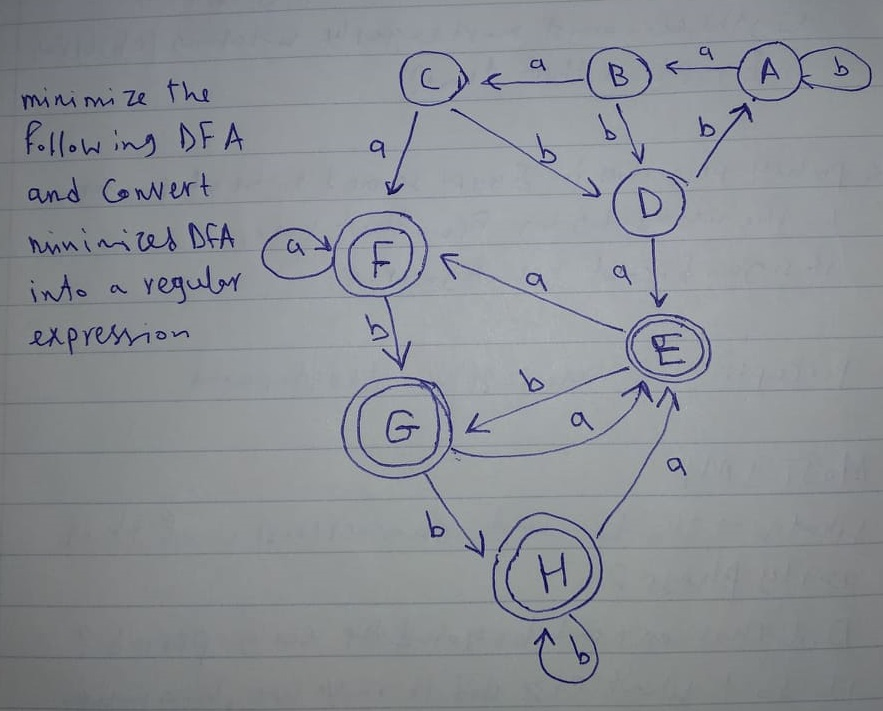 minimize the
following DFA
and Convert
minimized DFA
into a regular
expression
C a B a A b
a b b b
D
a F a a
b E
b
G a
a
b
H
b